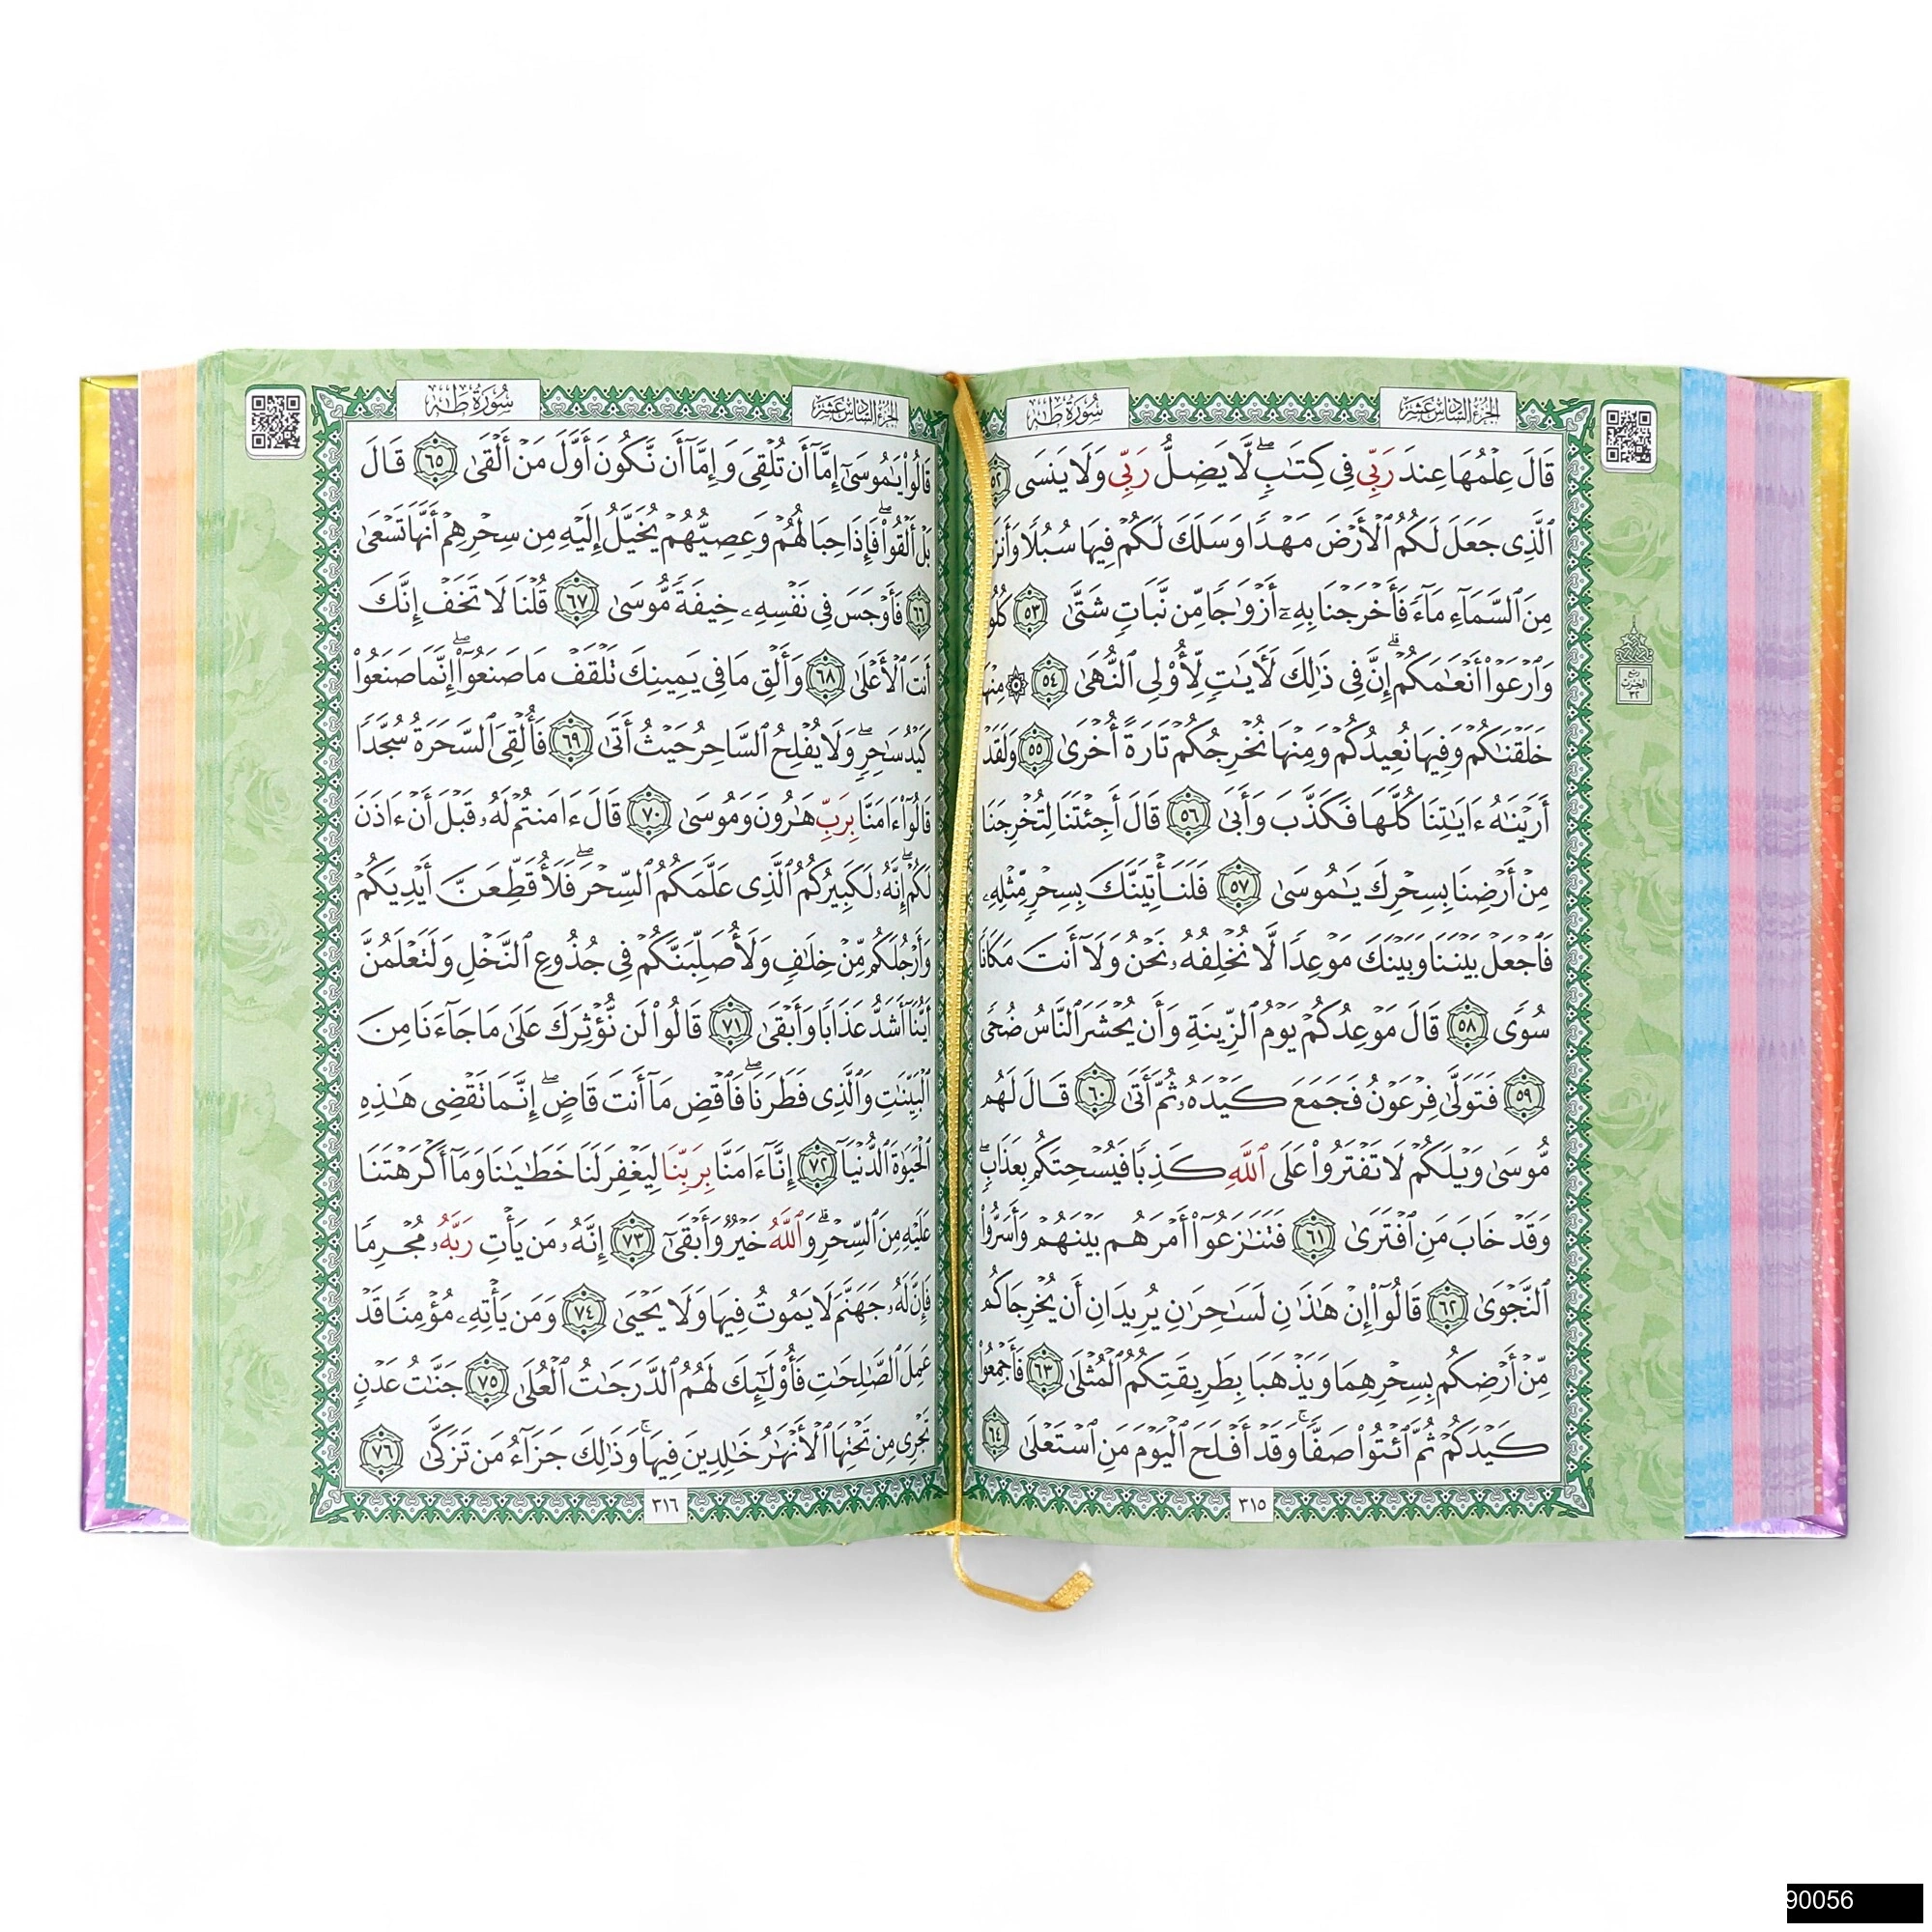 الجزء السادس عشر
سورة طه
قَالَ عِلْمُهَا عِندَ رَبِّى فِى كِتَٰبٍۖ لَّا يَضِلُّ رَبِّى وَلَا يَنسَى ٥٢
ٱلَّذِى جَعَلَ لَكُمُ ٱلْأَرْضَ مَهْدًا وَسَلَكَ لَكُمْ فِيهَا سُبُلًا
مِنَ ٱلسَّمَآءِ مَآءً فَأَخْرَجْنَا بِهِۦٓ أَزْوَٰجًا مِّن نَّبَاتٍ شَتَّىٰ ٥٣ كُلُوا
وَٱرْعَوْا۟ أَنْعَٰمَكُمْۗ إِنَّ فِى ذَٰلِكَ لَـَٔايَٰتٍ لِّأُو۟لِى ٱلنُّهَىٰ ٥٤ ۞ مِنْهَا
خَلَقْنَٰكُمْ وَفِيهَا نُعِيدُكُمْ وَمِنْهَا نُخْرِجُكُمْ تَارَةً أُخْرَىٰ ٥٥ وَلَقَدْ
أَرَيْنَٰهُ ءَايَٰتِنَا كُلَّهَا فَكَذَّبَ وَأَبَىٰ ٥٦ قَالَ أَجِئْتَنَا لِتُخْرِجَنَا
مِنْ أَرْضِنَا بِسِحْرِكَ يَٰمُوسَىٰ ٥٧ فَلَنَأْتِيَنَّكَ بِسِحْرٍ مِّثْلِهِۦ
فَٱجْعَلْ بَيْنَنَا وَبَيْنَكَ مَوْعِدًا لَّا نُخْلِفُهُۥ نَحْنُ وَلَآ أَنتَ مَكَانًا
سُوًى ٥٨ قَالَ مَوْعِدُكُمْ يَوْمُ ٱلزِّينَةِ وَأَن يُحْشَرَ ٱلنَّاسُ ضُحًى
٥٩ فَتَوَلَّىٰ فِرْعَوْنُ فَجَمَعَ كَيْدَهُۥ ثُمَّ أَتَىٰ ٦٠ قَالَ لَهُم
مُّوسَىٰ وَيْلَكُمْ لَا تَفْتَرُوا۟ عَلَى ٱللَّهِ كَذِبًا فَيُسْحِتَكُم بِعَذَابٍۖ
وَقَدْ خَابَ مَنِ ٱفْتَرَىٰ ٦١ فَتَنَٰزَعُوٓا۟ أَمْرَهُم بَيْنَهُمْ وَأَسَرُّوا۟
ٱلنَّجْوَىٰ ٦٢ قَالُوٓا۟ إِنْ هَٰذَٰنِ لَسَٰحِرَٰنِ يُرِيدَانِ أَن يُخْرِجَاكُم
مِّنْ أَرْضِكُم بِسِحْرِهِمَا وَيَذْهَبَا بِطَرِيقَتِكُمُ ٱلْمُثْلَىٰ ٦٣ فَأَجْمِعُوا۟
كَيْدَكُمْ ثُمَّ ٱئْتُوا۟ صَفًّاۚ وَقَدْ أَفْلَحَ ٱلْيَوْمَ مَنِ ٱسْتَعْلَىٰ ٦٤
٣١٥
ربع
الحزب
٣٢
الجزء السادس عشر
سورة طه
قَالُوا۟ يَٰمُوسَىٰٓ إِمَّآ أَن تُلْقِىَ وَإِمَّآ أَن نَّكُونَ أَوَّلَ مَنْ أَلْقَىٰ ٦٥ قَالَ
بَلْ أَلْقُوا۟ۖ فَإِذَا حِبَالُهُمْ وَعِصِيُّهُمْ يُخَيَّلُ إِلَيْهِ مِن سِحْرِهِمْ أَنَّهَا تَسْعَىٰ
٦٦ فَأَوْجَسَ فِى نَفْسِهِۦ خِيفَةً مُّوسَىٰ ٦٧ قُلْنَا لَا تَخَفْ إِنَّكَ
أَنتَ ٱلْأَعْلَىٰ ٦٨ وَأَلْقِ مَا فِى يَمِينِكَ تَلْقَفْ مَا صَنَعُوٓا۟ۖ إِنَّمَا صَنَعُوا۟
كَيْدُ سَٰحِرٍۖ وَلَا يُفْلِحُ ٱلسَّاحِرُ حَيْثُ أَتَىٰ ٦٩ فَأُلْقِىَ ٱلسَّحَرَةُ سُجَّدًا
قَالُوٓا۟ ءَامَنَّا بِرَبِّ هَٰرُونَ وَمُوسَىٰ ٧٠ قَالَ ءَامَنتُمْ لَهُۥ قَبْلَ أَنْ ءَاذَنَ
لَكُمْۖ إِنَّهُۥ لَكَبِيرُكُمُ ٱلَّذِى عَلَّمَكُمُ ٱلسِّحْرَۖ فَلَأُقَطِّعَنَّ أَيْدِيَكُمْ
وَأَرْجُلَكُم مِّنْ خِلَٰفٍ وَلَأُصَلِّبَنَّكُمْ فِى جُذُوعِ ٱلنَّخْلِ وَلَتَعْلَمُنَّ
أَيُّنَآ أَشَدُّ عَذَابًا وَأَبْقَىٰ ٧١ قَالُوا۟ لَن نُّؤْثِرَكَ عَلَىٰ مَا جَآءَنَا مِنَ
ٱلْبَيِّنَٰتِ وَٱلَّذِى فَطَرَنَاۖ فَٱقْضِ مَآ أَنتَ قَاضٍۖ إِنَّمَا تَقْضِى هَٰذِهِ
ٱلْحَيَوٰةَ ٱلدُّنْيَآ ٧٢ إِنَّآ ءَامَنَّا بِرَبِّنَا لِيَغْفِرَ لَنَا خَطَٰيَٰنَا وَمَآ أَكْرَهْتَنَا
عَلَيْهِ مِنَ ٱلسِّحْرِۗ وَٱللَّهُ خَيْرٌ وَأَبْقَىٰٓ ٧٣ إِنَّهُۥ مَن يَأْتِ رَبَّهُۥ مُجْرِمًا
فَإِنَّ لَهُۥ جَهَنَّمَ لَا يَمُوتُ فِيهَا وَلَا يَحْيَىٰ ٧٤ وَمَن يَأْتِهِۦ مُؤْمِنًا قَدْ
عَمِلَ ٱلصَّٰلِحَٰتِ فَأُو۟لَٰٓئِكَ لَهُمُ ٱلدَّرَجَٰتُ ٱلْعُلَىٰ ٧٥ جَنَّٰتُ عَدْنٍ
تَجْرِى مِن تَحْتِهَا ٱلْأَنْهَٰرُ خَٰلِدِينَ فِيهَاۚ وَذَٰلِكَ جَزَآءُ مَن تَزَكَّىٰ ٧٦
٣١٦
90056